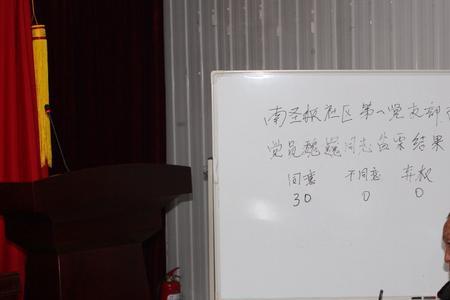 南圣板社区第一党支部
党员魏巍同志 票结果
同意 不同意 弃权
30 0 0